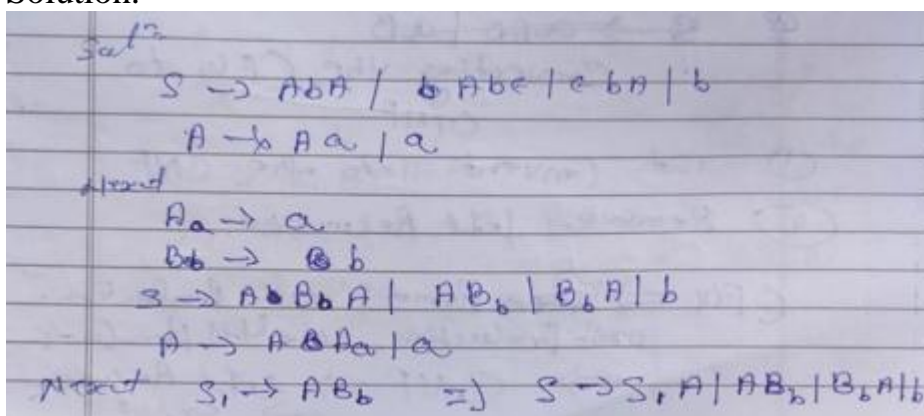 Solution:
Solⁿ
S → AbA | Abe | ebA | b
A → Aa | a
Next
Aa → a
Bb → b
S → A Bb A | A Bb | Bb A | b
A → A Aa | a
Next S₁ → A Bb ⇒ S → S₁ A | A Bb | Bb A | b